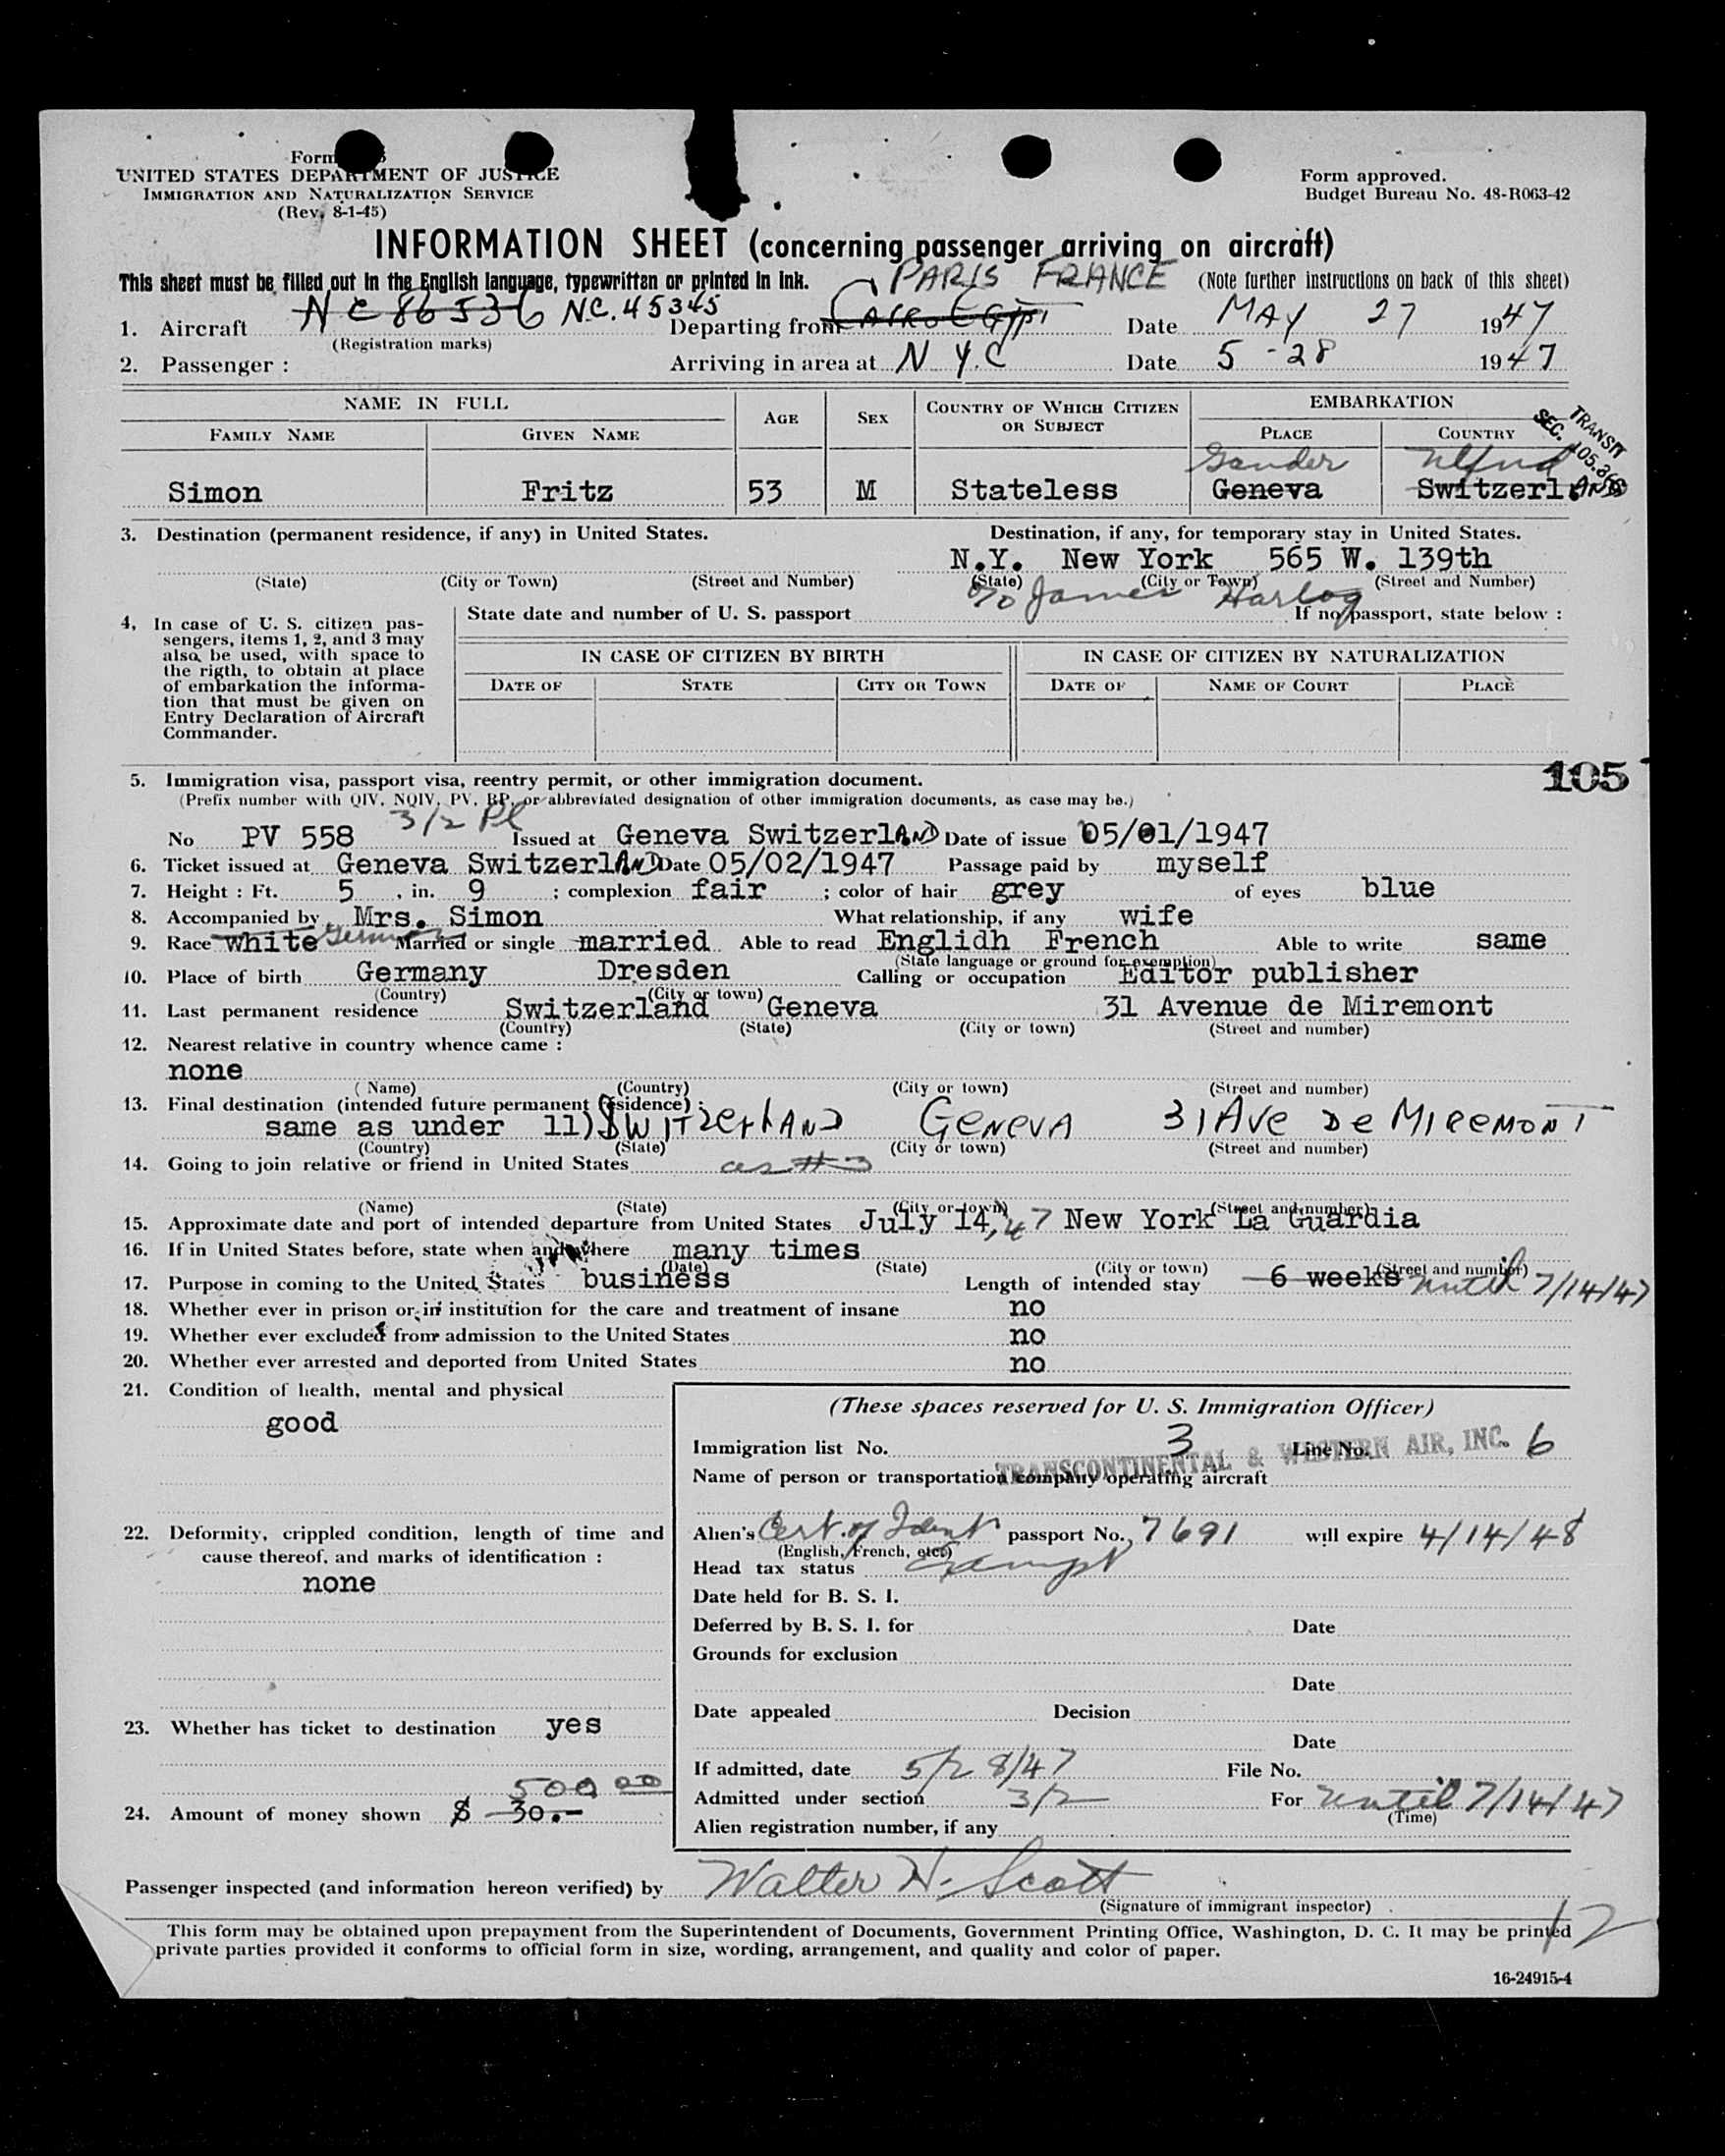 Form
UNITED STATES DEPARTMENT OF JUSTICE
IMMIGRATION AND NATURALIZATION SERVICE
(Rev. 8-1-45)
Form approved.
Budget Bureau No. 48-R063-42
INFORMATION SHEET (concerning passenger arriving on aircraft)
This sheet must be filled out in the English language, typewritten or printed in ink. (Note further instructions on back of this sheet)
PARIS FRANCE
1. Aircraft NC 86536 NC. 45345 Departing from CAIRO EGYPT Date MAY 27 1947
(Registration marks)
2. Passenger : Arriving in area at N.Y.C Date 5-28 1947
NAME IN FULL AGE SEX COUNTRY OF WHICH CITIZEN OR SUBJECT EMBARKATION
FAMILY NAME GIVEN NAME PLACE COUNTRY
TRANSIT
SEC. 105.
Gander Nfnd
Simon Fritz 53 M Stateless Geneva Switzerland
3. Destination (permanent residence, if any) in United States. Destination, if any, for temporary stay in United States.
N.Y. New York 565 W. 139th
(State) (City or Town) (Street and Number) (State) (City or Town) (Street and Number)
c/o James Hartog
4. In case of U. S. citizen pas-
sengers, items 1, 2, and 3 may
also be used, with space to
the rigth, to obtain at place
of embarkation the informa-
tion that must be given on
Entry Declaration of Aircraft
Commander.
State date and number of U. S. passport If no passport, state below :
IN CASE OF CITIZEN BY BIRTH IN CASE OF CITIZEN BY NATURALIZATION
DATE OF STATE CITY OR TOWN DATE OF NAME OF COURT PLACE
105
5. Immigration visa, passport visa, reentry permit, or other immigration document.
(Prefix number with QIV, NQIV, PV, RP, or abbreviated designation of other immigration documents, as case may be.)
3/2 Pl
No PV 558 Issued at Geneva SwitzerlAND Date of issue 05/01/1947
6. Ticket issued at Geneva SwitzerlAND Date 05/02/1947 Passage paid by myself
7. Height : Ft. 5 , in. 9 ; complexion fair ; color of hair grey of eyes blue
8. Accompanied by Mrs. Simon What relationship, if any wife
9. Race white German Married or single married Able to read Englidh French Able to write same
(State language or ground for exemption)
10. Place of birth Germany Dresden Calling or occupation Editor publisher
(Country) (City or town)
11. Last permanent residence Switzerland Geneva 31 Avenue de Miremont
(Country) (State) (City or town) (Street and number)
12. Nearest relative in country whence came :
none
( Name) (Country) (City or town) (Street and number)
13. Final destination (intended future permanent residence) :
same as under 11) SWITZERLAND GENEVA 31 AVE DE MIREMONT
(Country) (State) (City or town) (Street and number)
14. Going to join relative or friend in United States as # 3
(Name) (State) (City or town) (Street and number)
15. Approximate date and port of intended departure from United States July 14, 47 New York La Guardia
16. If in United States before, state when and where many times
(Date) (State) (City or town) (Street and number)
17. Purpose in coming to the United States business Length of intended stay 6 weeks until 7/14/47
18. Whether ever in prison or in institution for the care and treatment of insane no
19. Whether ever excluded from admission to the United States no
20. Whether ever arrested and deported from United States no
21. Condition of health, mental and physical
good
22. Deformity, crippled condition, length of time and
cause thereof, and marks of identification :
none
23. Whether has ticket to destination yes
500 00
24. Amount of money shown $ 30.-
(These spaces reserved for U. S. Immigration Officer)
Immigration list No. 3 Line No. 6
TRANSCONTINENTAL & WESTERN AIR, INC.
Name of person or transportation company operating aircraft
Alien's Cert. of Ident passport No. 7691 will expire 4/14/48
(English, French, etc.)
Head tax status Exempt
Date held for B. S. I.
Deferred by B. S. I. for Date
Grounds for exclusion
Date
Date appealed Decision
Date
If admitted, date 5/28/47 File No.
Admitted under section 3/2 For until 7/14/47
(Time)
Alien registration number, if any
Passenger inspected (and information hereon verified) by Walter H. Scott
(Signature of immigrant inspector)
12
This form may be obtained upon prepayment from the Superintendent of Documents, Government Printing Office, Washington, D. C. It may be printed
private parties provided it conforms to official form in size, wording, arrangement, and quality and color of paper.
16-24915-4